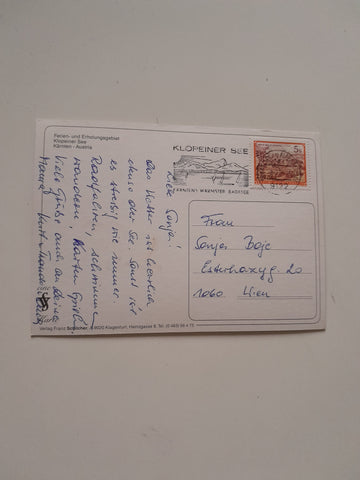 Ferien- und Erholungsgebiet
Klopeiner See
Kärnten - Austria
KLOPEINER SEE
KÄRNTENS WÄRMSTER BADESEE
5 S
9122
Liebe Sonja!
Das Wetter ist herrlich
ebenso der See. Sonst ist
es stressig wie immer.
Radlfahren, schwimmen
wandern, Karten spielen.
Viele Grüße auch an deine
Mama
Frau
Sonja
Esterhazyg. 20
1060 Wien
Verlag Franz Schilcher, A-9020 Klagenfurt